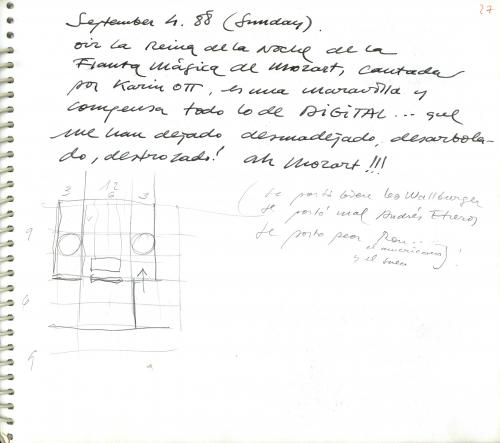 27
September 4. 88 (Sunday).
oir la Reina de la Noche de la
Flauta Mágica de Mozart, cantada
por Karin Ott, es una maravilla y
compensa todo lo de DiGiTAL... que
me han dejado desmadejado, desarbola-
do, destrozado! ah Mozart!!!
(se portó bien Leo Wallburger
se portó mal Andrés
se porto peor Ron...
el americano
y el
3 12 3
6
9
6